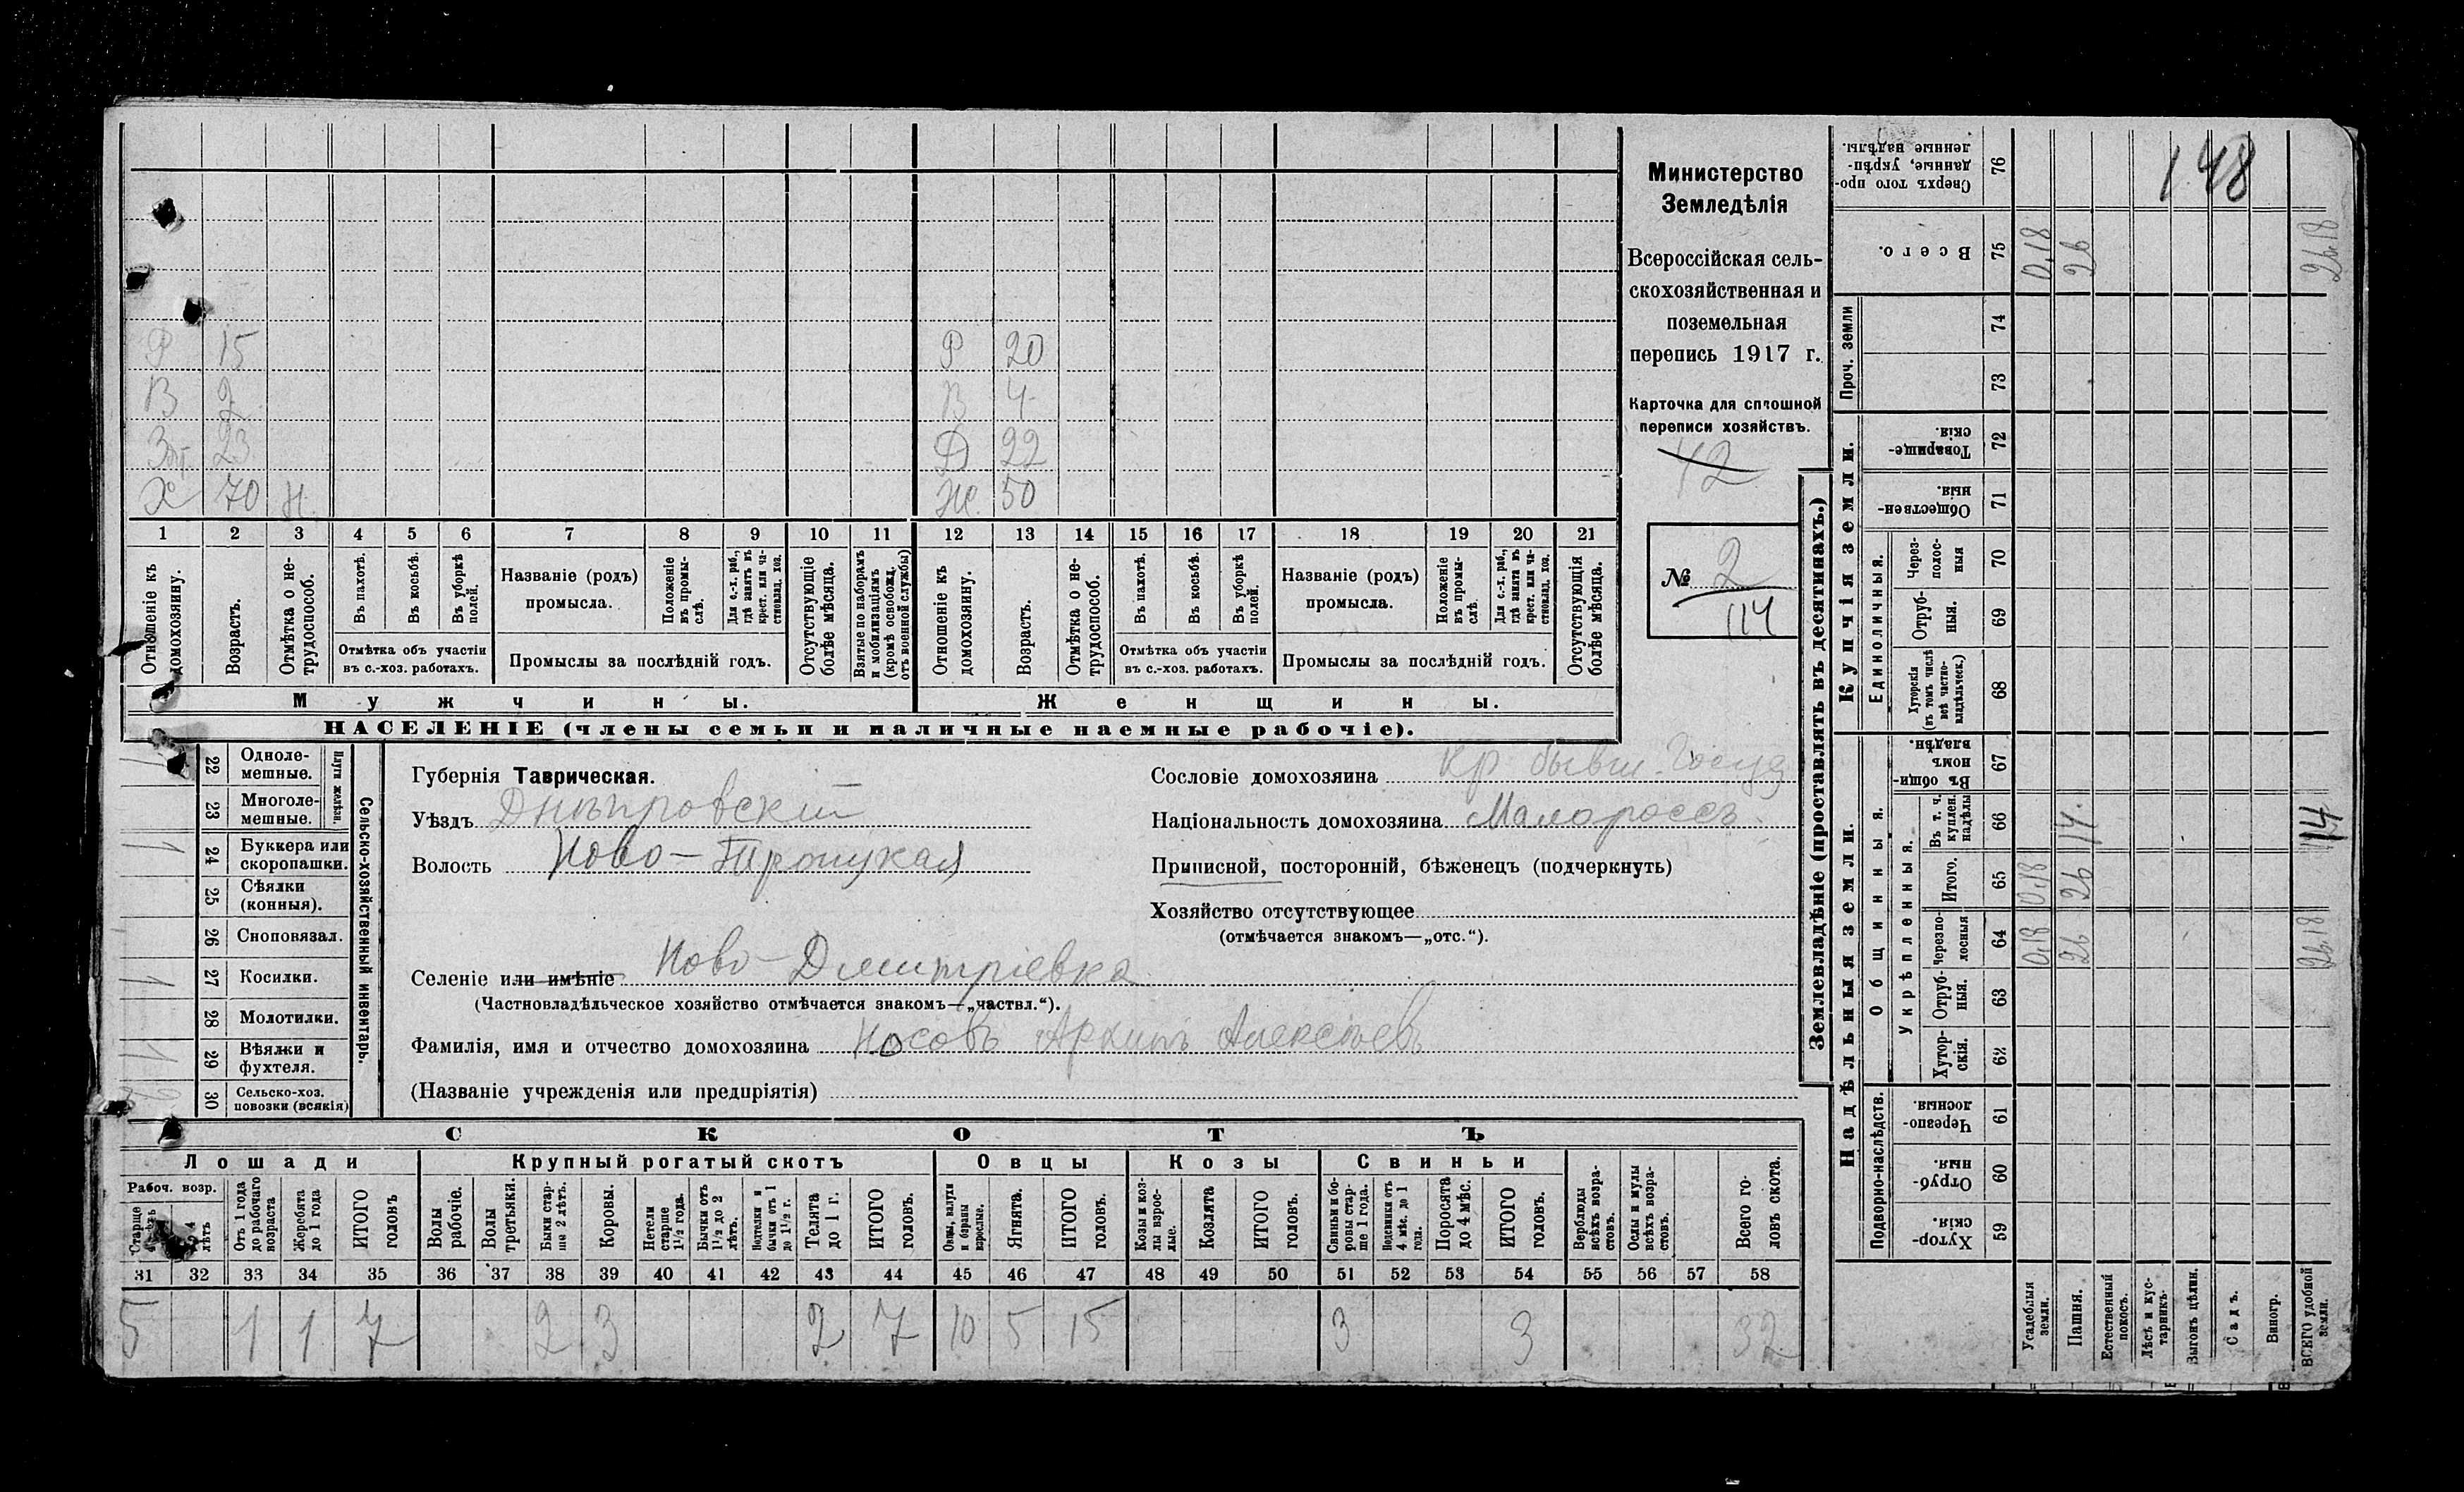 Р 15 Р 20
В 2 В 4
Зт. 23 Д 22
Х 70 Н. Ж. 50
1 2 3 4 5 6 7 8 9 10 11 12 13 14 15 16 17 18 19 20 21
Отношеніе къ домохозяину.
Возрастъ.
Отмѣтка о не-
трудоспособ.
Въ пахотѣ.
Въ косьбѣ.
Въ уборкѣ
полей.
Отмѣтка объ участіи
въ с.-хоз. работахъ.
Названіе (родъ)
промысла.
Положеніе
въ промы-
слѣ.
Для с.-х. раб.,
гдѣ занятъ въ
крест. или ча-
стновлад. хоз.
Промыслы за послѣдній годъ.
Отсутствующіе
болѣе мѣсяца.
Взятые по наборамъ
и мобилизаціямъ
(кромѣ освобожд.
отъ военной службы)
Отношеніе къ
домохозяину.
Возрастъ.
Отмѣтка о не-
трудоспособ.
Въ пахотѣ.
Въ косьбѣ.
Въ уборкѣ
полей.
Отмѣтка объ участіи
въ с.-хоз. работахъ.
Названіе (родъ)
промысла.
Положеніе
въ промы-
слѣ.
Для с.-х. раб.,
гдѣ занята въ
крест. или ча-
стновлад. хоз.
Промыслы за послѣдній годъ.
Отсутствующія
болѣе мѣсяца.
Мужчины. Женщины.
НАСЕЛЕНІЕ (члены семьи и наличные наемные рабочіе).
Министерство
Земледѣлія
Всероссійская сель-
скохозяйственная и
поземельная
перепись 1917 г.
Карточка для сплошной
переписи хозяйствъ.
42
№ 2
114
Сельско-хозяйственный инвентарь.
Плуги желѣзн.
22 Одноле-
мешные. 1
23 Многоле-
мешные.
24 Буккера или
скоропашки. 1
25 Сѣялки
(конныя).
26 Сноповязал.
27 Косилки. 1
28 Молотилки.
29 Вѣялки и
фухтеля. 1
30 Сельско-хоз.
повозки (всякія) 2
Губернія Таврическая.
Уѣздъ Днѣпровскій
Волость Ново-Троицкая
Сословіе домохозяина Кр бывш. Госуд
Національность домохозяина Малороссъ.
Приписной, посторонній, бѣженецъ (подчеркнуть)
Хозяйство отсутствующее
(отмѣчается знакомъ—„отс.“).
Селеніе или имѣніе Ново-Дмитріевка
(Частновладѣльческое хозяйство отмѣчается знакомъ—„частвл.“).
Фамилія, имя и отчество домохозяина Носовъ Архипъ Алексѣевъ
(Названіе учрежденія или предпріятія)
СКОТЪ
Лошади Крупный рогатый скотъ Овцы Козы Свиньи
Рабоч. возр.
Старше
лѣтъ
Отъ 1 года
до рабочаго
возраста
Жеребята
до 1 года
ИТОГО
головъ
Волы
рабочіе.
Волы
третьяки.
Быки стар-
ше 2 лѣтъ.
Коровы.
Нетели
старше
1½ года.
Бычки отъ
1½ до 2
лѣтъ.
Нетелки и
бычки отъ 1
до 1½ г.
Телята
до 1 г.
ИТОГО
головъ.
Овцы, валухи
и бараны
взрослые.
Ягнята.
ИТОГО
головъ.
Козы и коз-
лы взрос-
лые.
Козлята
ИТОГО
головъ.
Свиньи и бо-
ровы стар-
ше 1 года.
Подсвинки отъ
4 мѣс. до 1
года.
Поросята
до 4 мѣс.
ИТОГО
головъ.
Верблюды
всѣхъ возра-
стовъ.
Ослы и мулы
всѣхъ возра-
стовъ.
Всего го-
ловъ скота.
31 32 33 34 35 36 37 38 39 40 41 42 43 44 45 46 47 48 49 50 51 52 53 54 55 56 57 58
5 1 1 7 2 3 2 7 10 5 15 3 3 32
Землевладѣніе (проставлять въ десятинахъ.)
148
Сверхъ того про-
данные, укрѣп-
ленные надѣлы. 76
Всего. 75 0,18 26 26,18
Купчія земли.
Проч. земли
74
73
Товарище-
скія. 72
Обществен-
ныя. 71
Единоличныя.
Через-
полос-
ныя 70
Отруб-
ныя. 69
Хуторскія
(въ томъ числѣ
всѣ частно-
владѣльческ.) 68
Надѣльныя земли.
Общинныя.
Въ общин-
номъ
владѣн. 67
Укрѣпленныя.
Въ т. ч.
куплен.
надѣлы 66 14. 14
Итого. 65 0,18 26
Черезпо-
лосныя 64 0,18 26 26,18
Отруб-
ныя. 63
Хутор-
скія. 62
Подворно-наслѣдств.
Черезпо-
лосныя. 61
Отруб-
ныя. 60
Хутор-
скія. 59
Усадебныя
земли.
Пашня.
Естественный
покосъ.
Лѣсъ и кус-
тарникъ.
Выгонъ цѣлин.
Садъ.
Виногр.
ВСЕГО удобной
земли.